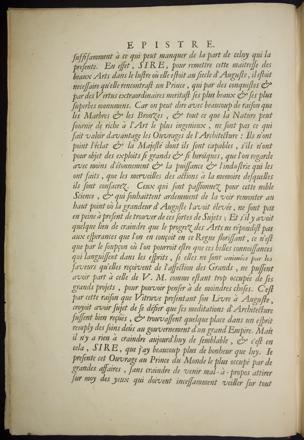 EPISTRE.
suffisamment à ce qui peut manquer de la part de celuy qui la
presente. En effet, SIRE, pour remettre cette maistresse des
beaux Arts dans le lustre où elle estoit au siecle d'Auguste, il estoit
necessaire qu'elle rencontrast un Prince, qui par des conquestes &
par des Vertus extraordinaires meritast ses plus beaux & ses plus
superbes monumens. Car on peut dire avec beaucoup de raison que
les Marbres & les Bronzes, & tout ce que la Nature peut
fournir de riche à l'Art le plus ingenieux, ne sont pas ce qui
fait valoir davantage les Ouvrages de l'Architecture; Ils n'ont
point l'éclat & la Majesté dont ils sont capables, s'ils n'ont
pour objet des exploits si grands & si heroïques, que l'on regarde
avec moins d'étonnement & la puissance & l'industrie qui les
ont faits, que les merveilles des actions à la memoire desquelles
ils sont consacrez. Ceux qui sont passionnez pour cette noble
Science, & qui souhaittent ardemment de la voir remonter au
haut point où la grandeur d'Auguste l'avoit élevée, ne sont pas
en peine à present de trouver de ces sortes de Sujets; Et s'il y avoit
quelque lieu de craindre que le progrez des Arts ne répondist pas
aux esperances que l'on en conçoit en ce Regne florissant, ce n'est
que par le soupçon où l'on pourroit estre que ces belles connoissances
qui languissent dans les esprits, si elles ne sont animées par les
faveurs qu'elles reçoivent de l'affection des Grands, ne pussent
avoir part à celle de V. M. comme estant trop occupée de ses
grands projets, pour pouvoir penser à de moindres choses. C'est
par cette raison que Vitruve presentant son Livre à Auguste,
croyoit avoir sujet de se défier que ses meditations d'Architecture
fussent bien reçuës, & trouvassent quelque place dans un esprit
remply des soins deus au gouvernement d'un grand Empire. Mais
il n'y a rien à craindre aujourd'huy de semblable, & c'est en
cela, SIRE, que j'ay beaucoup plus de bonheur que luy. Je
presente cet Ouvrage au Prince du Monde le plus occupé par de
grandes affaires, sans craindre de venir mal-à-propos attirer
sur moy des yeux qui doivent incessamment veiller sur tout